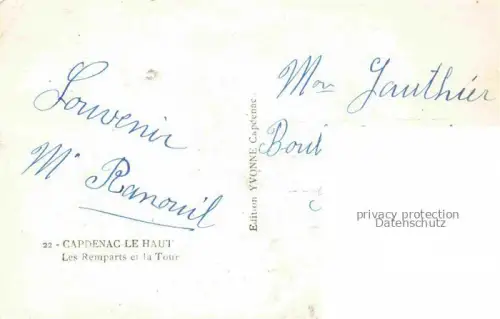 Souvenir
M. Ranouil
22 - CAPDENAC-LE HAUT
Les Remparts et la Tour
Edition YVONNE Capdenac
Gauthier
privacy protection
Datenschutz